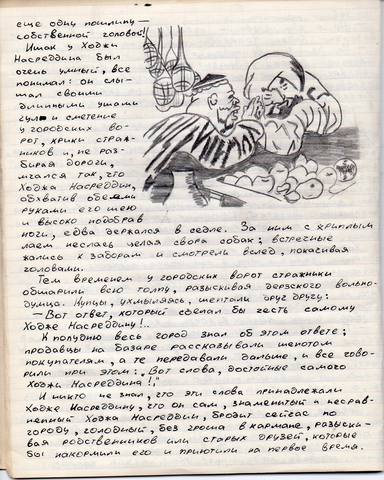 еще одну пошлину —
собственной головой!
Ишак у Ходжи
Насреддина был
очень умный, все
понимал: он слы-
шал своими
длинными ушами
гул и смятение
у городских во-
рот, крики страж-
ников и, не раз-
бирая дороги,
мчался так, что
Ходжа Насреддин,
обхватив обеими
руками его шею
и высоко подобрав
ноги, едва держался в седле. За ним с хриплым
лаем неслась целая свора собак; встречные
жались к заборам и смотрели вслед, покачивая
головами.
Тем временем у городских ворот стражники
обшарили всю толпу, разыскивая дерзского вольно-
думца. Купцы, ухмыляясь, шептали друг другу:
— Вот ответ, который сделал бы честь самому
Ходже Насреддину!..
К полудню весь город знал об этом ответе;
продавцы на базаре рассказывали шепотом
покупателям, а те передавали дальше, и все гово-
рили при этом: „Вот слова, достойные самого
Ходжи Насреддина!"
И никто не знал, что эти слова принадлежали
Ходже Насреддину, что он сам, знаменитый и несрав-
ненный Ходжа Насреддин, бродит сейчас по
городу, голодный, без гроша в кармане, разыски-
вая родственников или старых друзей, которые
бы накормили его и приютили на первое время.